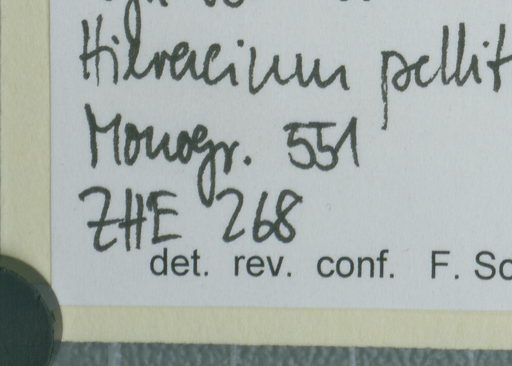 Hieracium pellit
Monogr. 551
ZHE 268
det. rev. conf. F. Sc